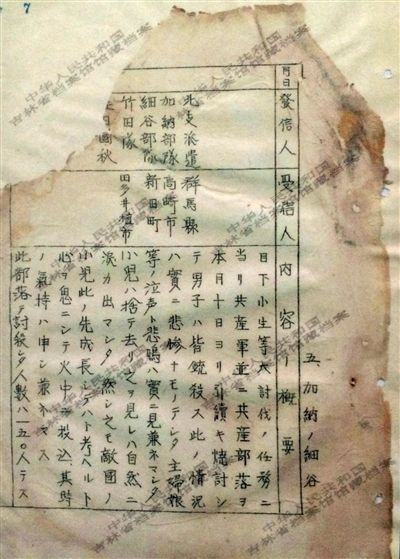 7
五、加納ノ細谷
月日
發信人
受信人
内容ノ概要
北支派遣
加納部隊
細谷部隊
竹田隊
田國秋
群馬縣
高崎市
新田町
田多井植市
目下小生等大討伐ノ任務ニ
当リ共産軍並ニ共産部落ヲ
本月十日ヨリ引續キ焼討シ
テ男子ハ皆銃殺ス此ノ情況
ハ實ニ悲惨ナモノデシタ主婦娘
等ノ泣声ト悲鳴ハ實ニ見兼ネマシタ
小児ハ捨テ去リ之ヲ見レハ自然ニ
涙カ出マシタ然シ之モ敵國ノ
小児此ノ先成長シテハト考ヘルト
心ヲ鬼ニシテ火中ニ投込、其時
ノ氣持ハ申シ兼ネマス
此部落デ討殺シタ人数ハ一五〇人テス
中华人民共和国
吉林省档案馆馆藏档案